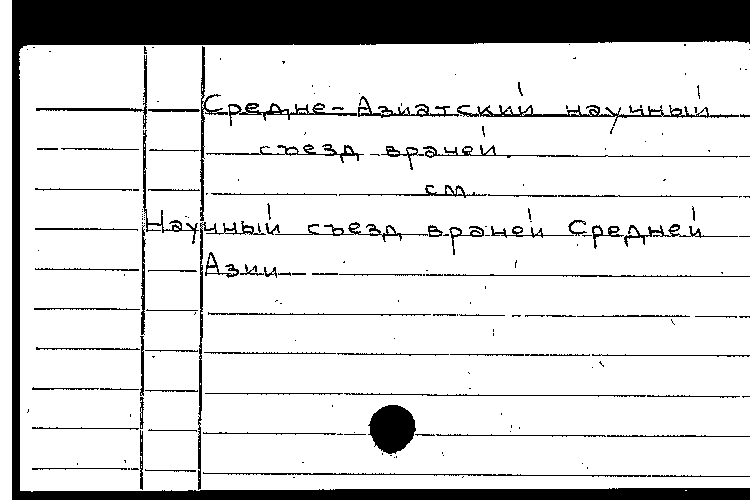 Средне-Азиатский научный
съезд врачей.
см.
Научный съезд врачей Средней
Азии